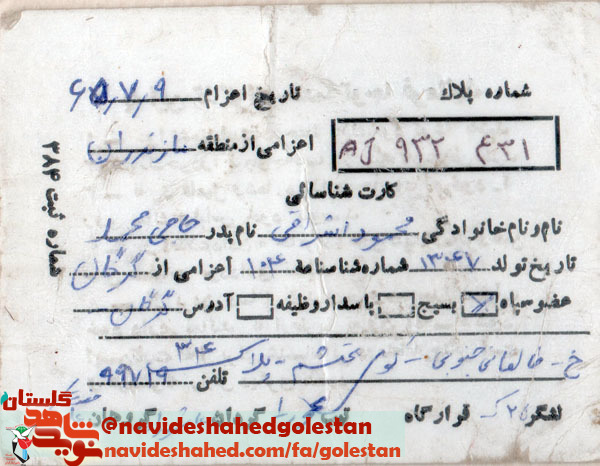 شماره پلاک تاریخ اعزام ۶۵/۷/۹
AJ ۹۳۲ ۴۳۱ اعزامی از منطقه مازندران
کارت شناسائی
نام و نام خانوادگی محمود اشراقی نام پدر حاجی محمد
تاریخ تولد ۱۳۴۷ شماره شناسنامه ۱۰۴ اعزامی از گرگان
عضو سپاه بسیج پاسدار وظیفه آدرس گرگان
خ - طالقانی جنوبی - کوی هشتم - پلاک ۳۴
تلفن
لشگر ۲۵ ک قرارگاه تیپ گردان گروهان
شماره ثبت ۳۸۴
گلستان
نوید شاهد
@navideshahedgolestan
navideshahed.com/fa/golestan